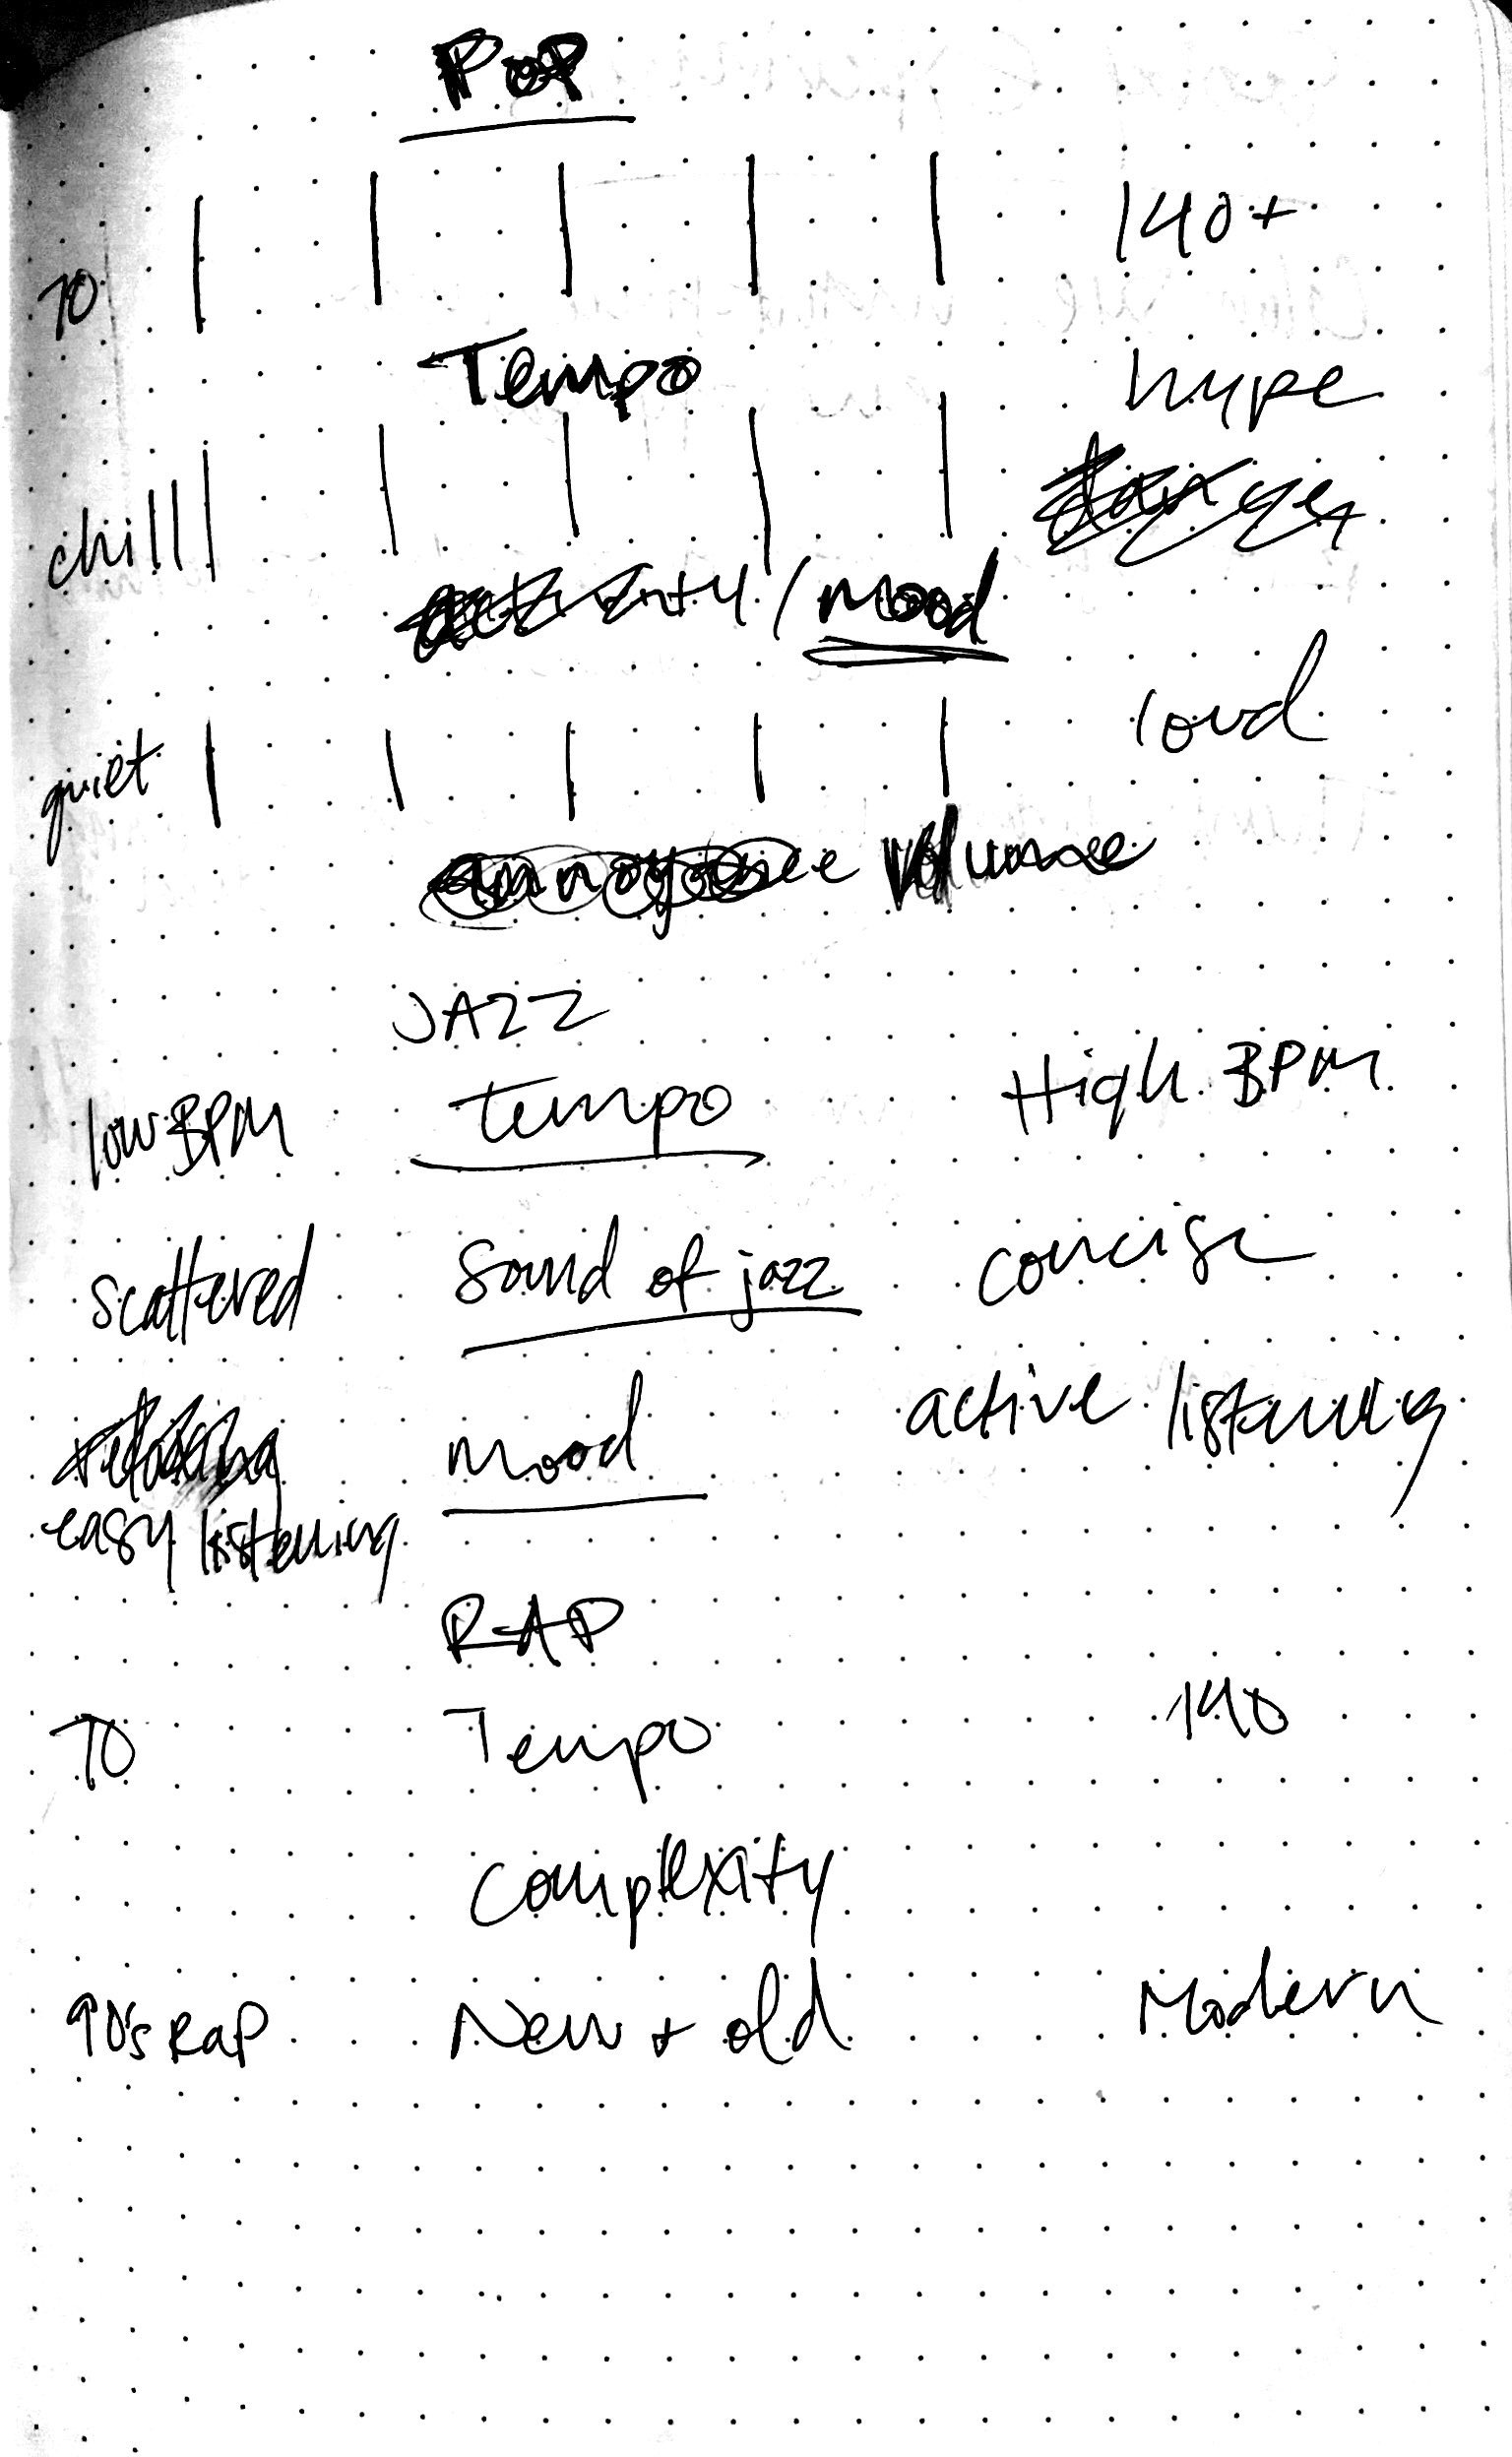 POP
70 140+
Tempo hype
chill
activity / mood
quiet loud
annoyance Volume
JAZZ
low BPM tempo High BPM
scattered Sound of jazz concise
relaxing mood active listening
easy listening
RAP
70 Tempo 140
Complexity
90's RaP New + old Modern